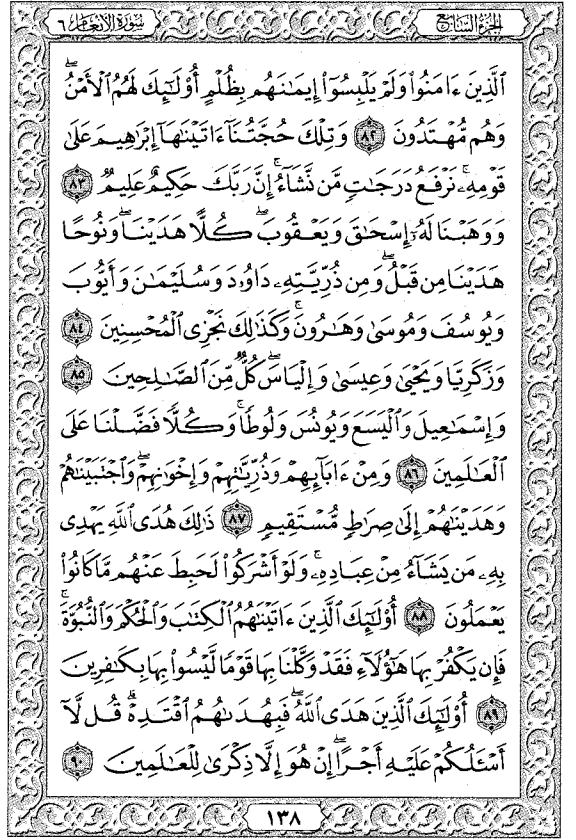 سُورَةُ الأَنعَام ٦ الجُزْءُ السَّابِعُ
ٱلَّذِينَ ءَامَنُوا۟ وَلَمْ يَلْبِسُوٓا۟ إِيمَٰنَهُم بِظُلْمٍ أُو۟لَٰٓئِكَ لَهُمُ ٱلْأَمْنُۖ
وَهُم مُّهْتَدُونَ ٨٢ وَتِلْكَ حُجَّتُنَآ ءَاتَيْنَٰهَآ إِبْرَٰهِيمَ عَلَىٰ
قَوْمِهِۦۚ نَرْفَعُ دَرَجَٰتٍ مَّن نَّشَآءُۗ إِنَّ رَبَّكَ حَكِيمٌ عَلِيمٌ ٨٣
وَوَهَبْنَا لَهُۥٓ إِسْحَٰقَ وَيَعْقُوبَۖ كُلًّا هَدَيْنَاۖ وَنُوحًا
هَدَيْنَا مِن قَبْلُۖ وَمِن ذُرِّيَّتِهِۦ دَاوُۥدَ وَسُلَيْمَٰنَ وَأَيُّوبَ
وَيُوسُفَ وَمُوسَىٰ وَهَٰرُونَۚ وَكَذَٰلِكَ نَجْزِى ٱلْمُحْسِنِينَ ٨٤
وَزَكَرِيَّا وَيَحْيَىٰ وَعِيسَىٰ وَإِلْيَاسَۖ كُلٌّ مِّنَ ٱلصَّٰلِحِينَ ٨٥
وَإِسْمَٰعِيلَ وَٱلْيَسَعَ وَيُونُسَ وَلُوطًاۚ وَكُلًّا فَضَّلْنَا عَلَى
ٱلْعَٰلَمِينَ ٨٦ وَمِنْ ءَابَآئِهِمْ وَذُرِّيَّٰتِهِمْ وَإِخْوَٰنِهِمْۖ وَٱجْتَبَيْنَٰهُمْ
وَهَدَيْنَٰهُمْ إِلَىٰ صِرَٰطٍ مُّسْتَقِيمٍ ٨٧ ذَٰلِكَ هُدَى ٱللَّهِ يَهْدِى
بِهِۦ مَن يَشَآءُ مِنْ عِبَادِهِۦۚ وَلَوْ أَشْرَكُوا۟ لَحَبِطَ عَنْهُم مَّا كَانُوا۟
يَعْمَلُونَ ٨٨ أُو۟لَٰٓئِكَ ٱلَّذِينَ ءَاتَيْنَٰهُمُ ٱلْكِتَٰبَ وَٱلْحُكْمَ وَٱلنُّبُوَّةَۚ
فَإِن يَكْفُرْ بِهَا هَٰٓؤُلَآءِ فَقَدْ وَكَّلْنَا بِهَا قَوْمًا لَّيْسُوا۟ بِهَا بِكَٰفِرِينَ
٨٩ أُو۟لَٰٓئِكَ ٱلَّذِينَ هَدَى ٱللَّهُۖ فَبِهُدَىٰهُمُ ٱقْتَدِهْۗ قُل لَّآ
أَسْـَٔلُكُمْ عَلَيْهِ أَجْرًاۖ إِنْ هُوَ إِلَّا ذِكْرَىٰ لِلْعَٰلَمِينَ ٩٠
١٣٨